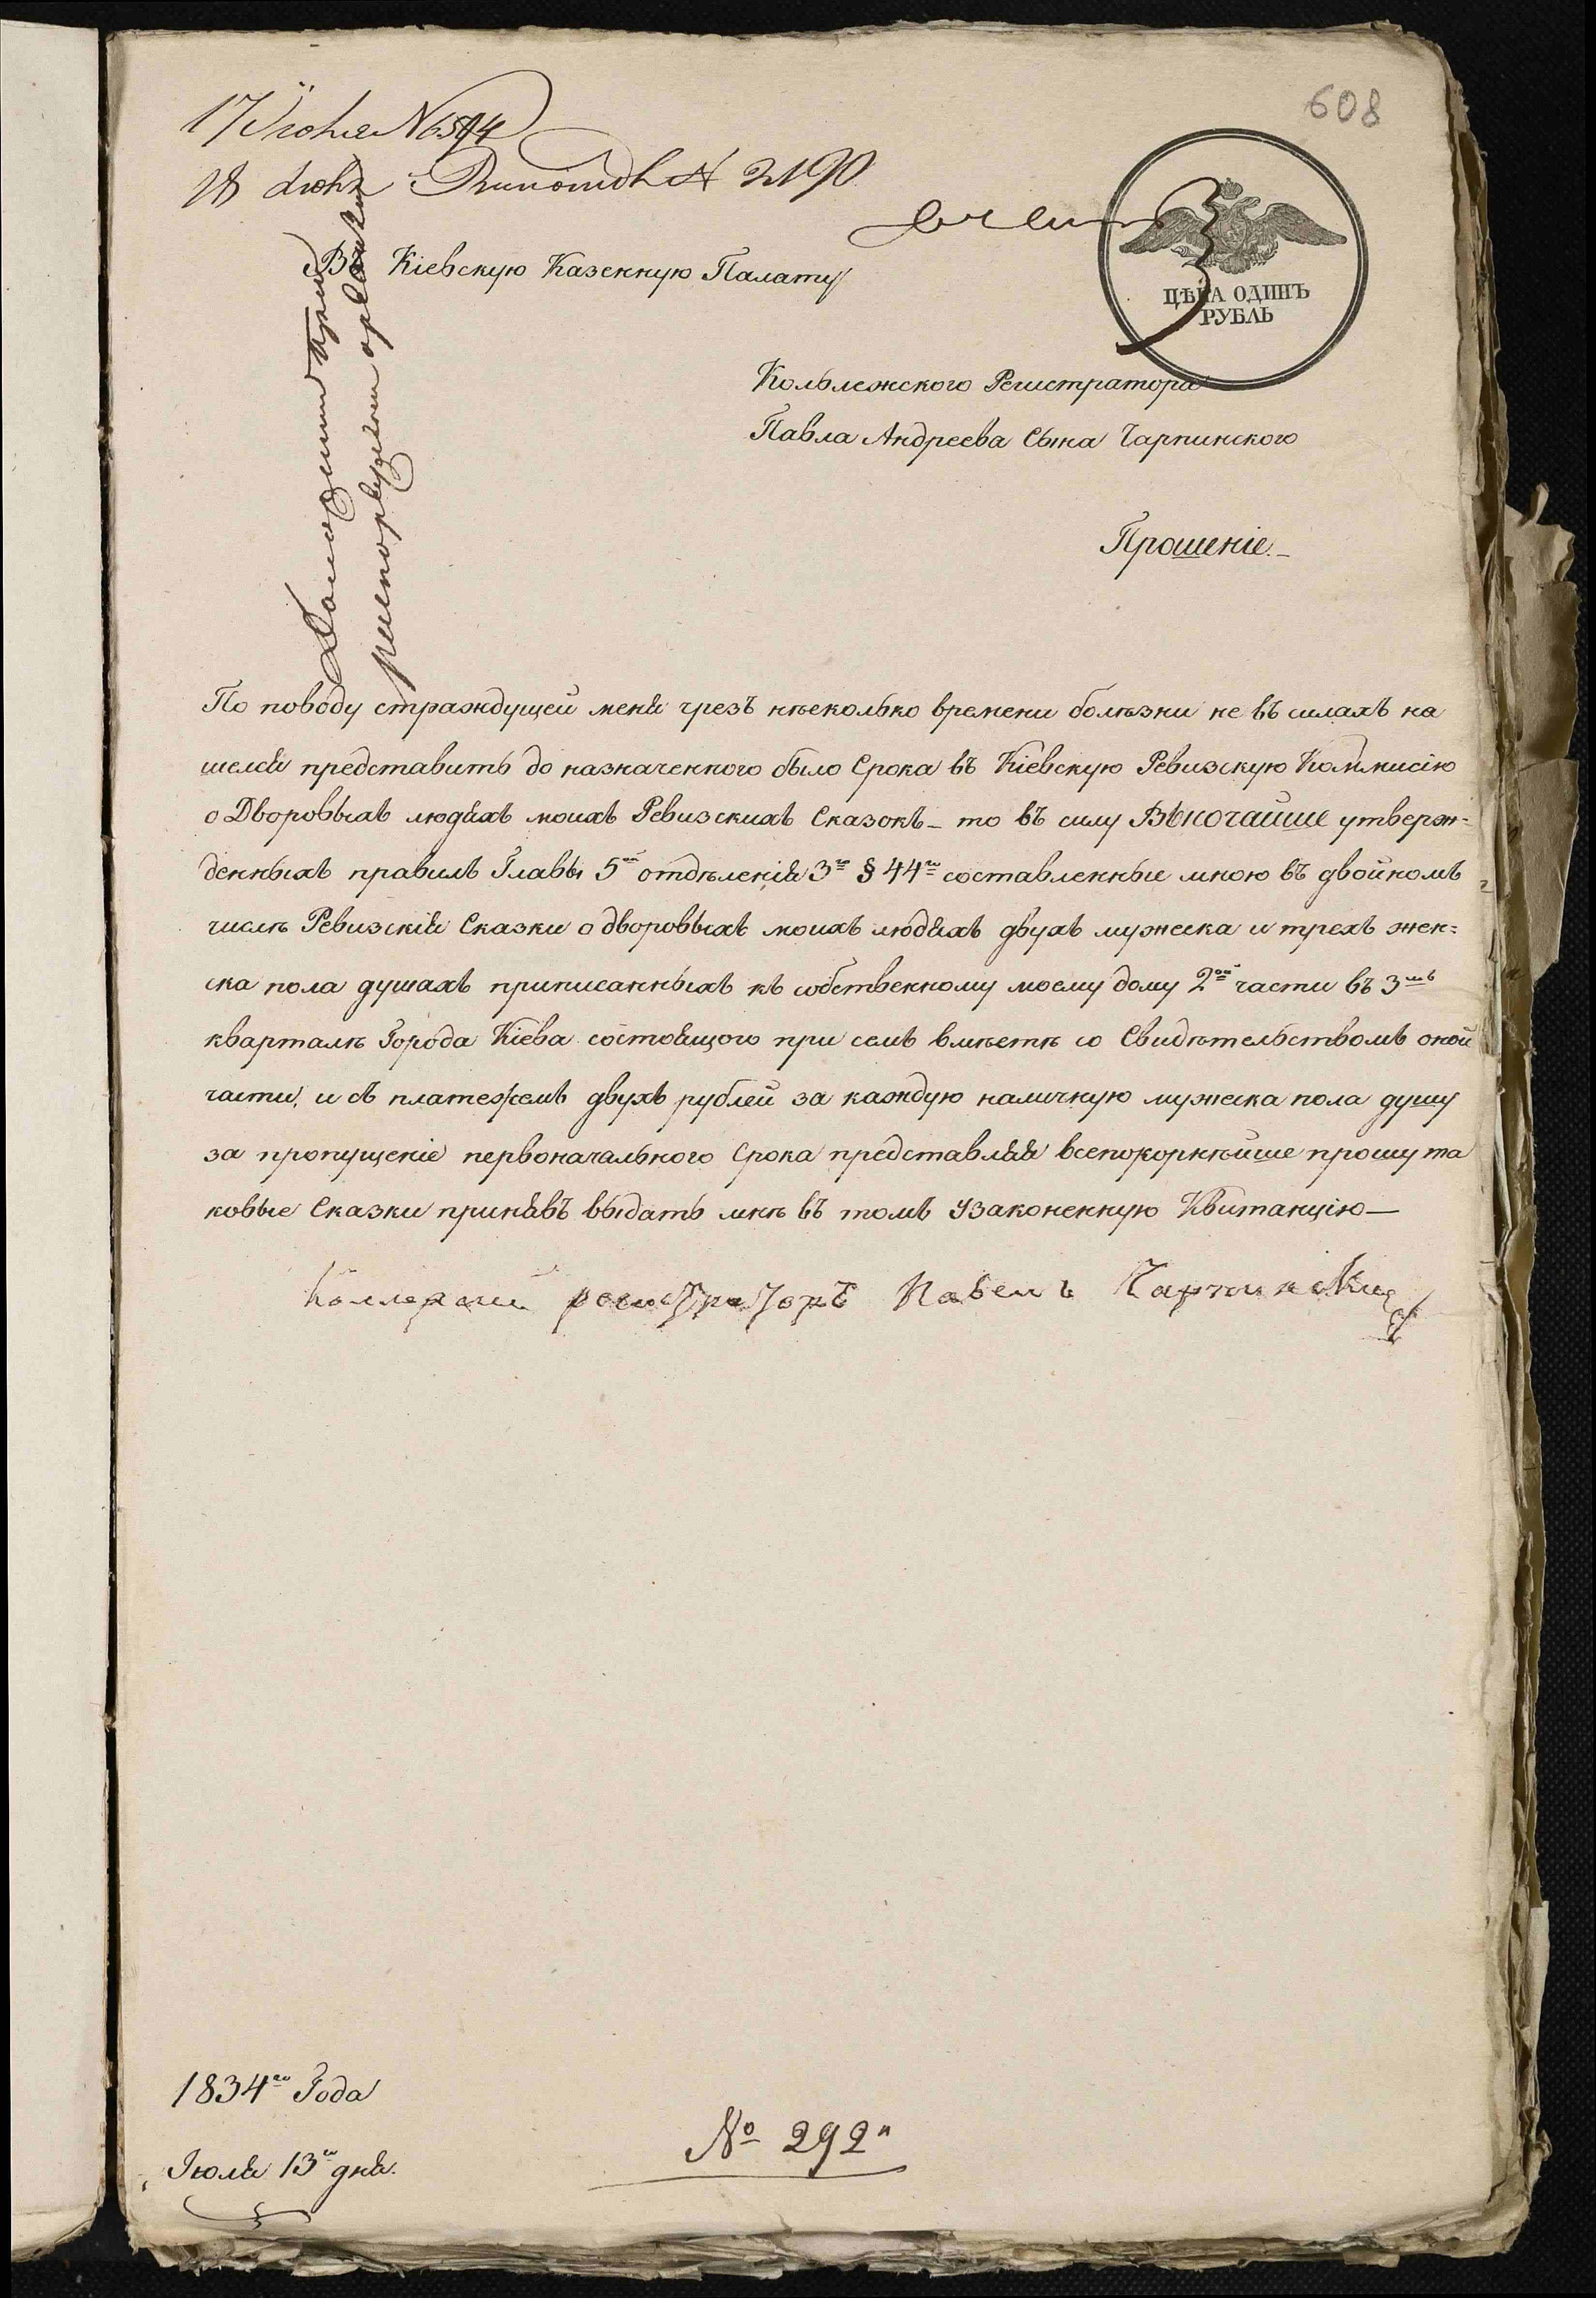 608
17 Июля N 6594
18 Июля N 2190
ЦѢНА ОДИНЪ
РУБЛЬ
Въ Кіевскую Казенную Палату
Кольлежского Регистратора
Павла Андреева Сына Чарпинского
Прошеніе.
По поводу страждущей меня чрезъ нѣсколько времени болѣзни не въ силахъ на
шелся представить до назначенного было Срока въ Кіевскую Ревизскую Коммисію
о Дворовыхъ людяхъ моихъ Ревизскихъ Сказокъ – то въ силу ВЫСОЧАЙШЕ утверж=
денныхъ правилъ Главы 5ой отдѣленія 3го § 44го составленные мною въ двойномъ
числѣ Ревизскія Сказки о дворовыхъ моихъ людяхъ двухъ мужеска и трехъ жен=
ска пола душахъ приписанныхъ къ собственному моему дому 2ой части въ 3мъ
кварталѣ Города Кіева состоящого при семъ вмѣстѣ со Свидѣтельствомъ оной
части, и съ платежемъ двухъ рублей за каждую наличную мужеска пола душу
за пропущеніе первоначального Срока представляя всепокорнѣйше прошу та
ковые Сказки принявъ выдать мнѣ въ томъ Узаконенную Квитанцію—
Коллежский регистраторъ Павелъ Чарпинский
1834го Года
Июля 13го дня.
№ 292